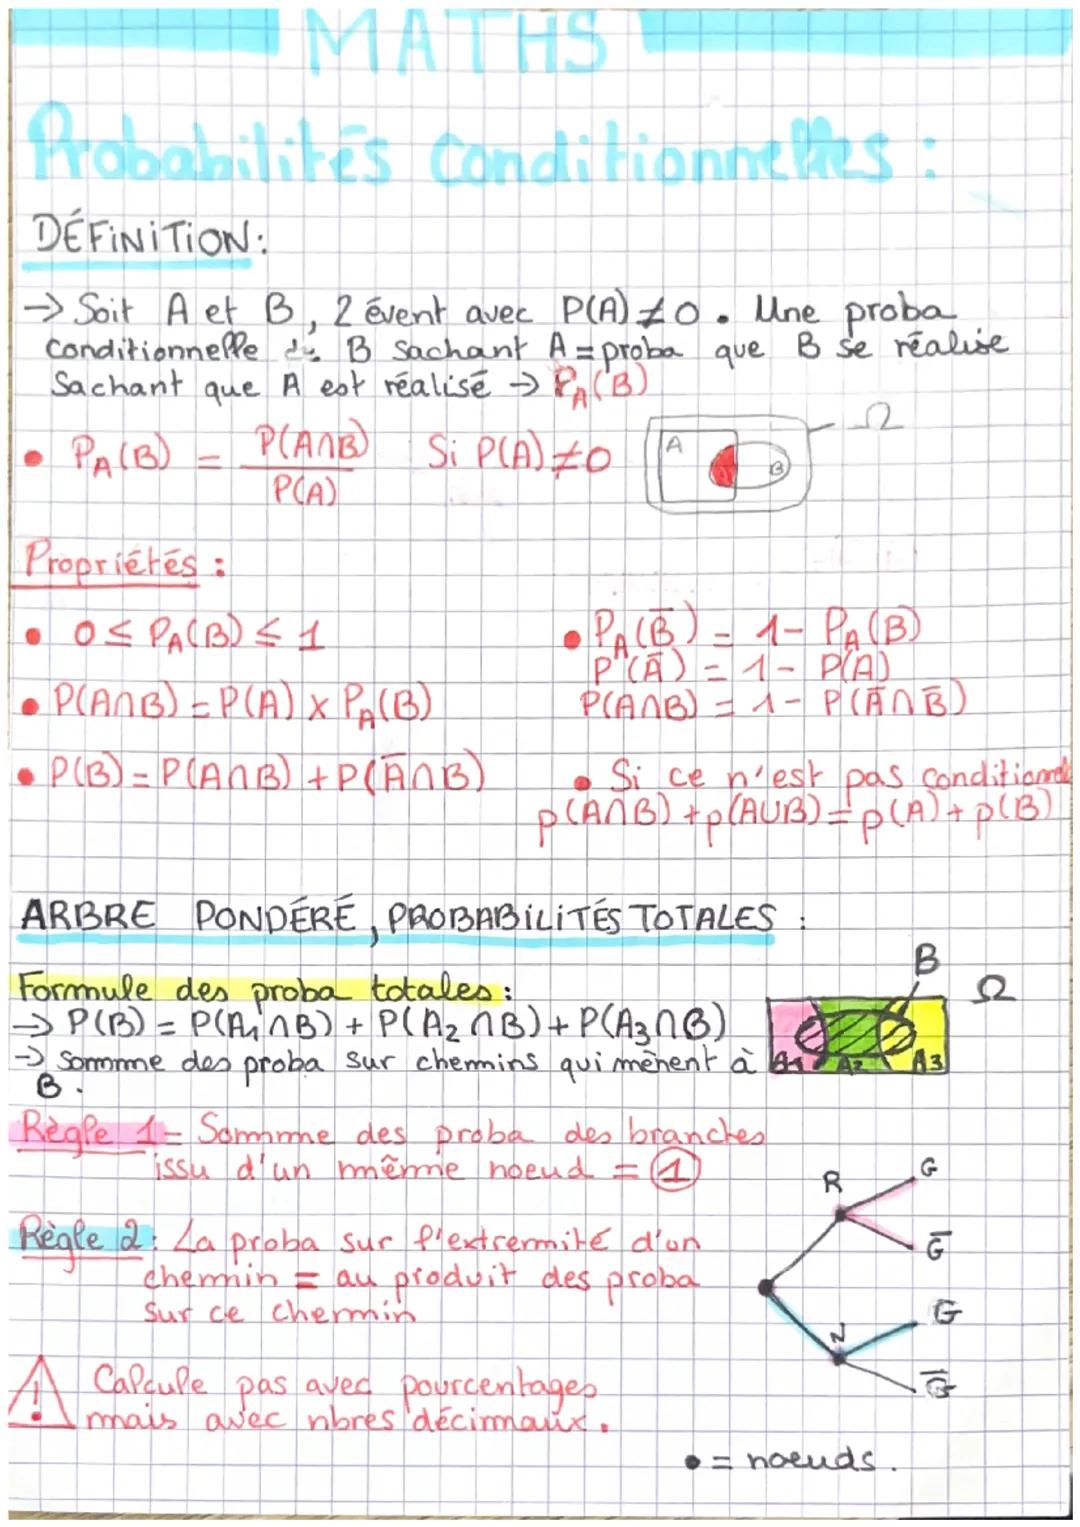 MATHS
Probabilités Conditionnelles :
DÉFINITION:
→ Soit A et B, 2 évent avec P(A)≠0. Une proba
conditionnelle de B sachant A = proba que B se réalise
Sachant que A est réalisé → P_A(B)
• P_A(B) = P(A∩B) / P(A) Si P(A)≠0
A B Ω
Propriétés :
• 0 ≤ P_A(B) ≤ 1
• P_A(B̅) = 1 - P_A(B)
P(A̅) = 1 - P(A)
• P(A∩B) = P(A) x P_A(B)
P(A∩B) = 1 - P(A̅∩B̅)
• P(B) = P(A∩B) + P(A̅∩B)
• Si ce n'est pas conditionnel
p(A∩B) + p(A∪B) = p(A) + p(B)
ARBRE PONDÉRÉ, PROBABILITÉS TOTALES :
B Ω
Formule des proba totales :
→ P(B) = P(A₁∩B) + P(A₂∩B) + P(A₃∩B)
→ Sommme des proba sur chemins qui mènent à
B.
A1 A2 A3
Règle 1 = Sommme des proba des branches
issu d'un même noeud = 1
R G
G̅
Règle 2 : La proba sur l'extremité d'un
chemin = au produit des proba
sur ce chemin
N G
G̅
! Calcule pas avec pourcentages
mais avec nbres décimaux.
• = noeuds.